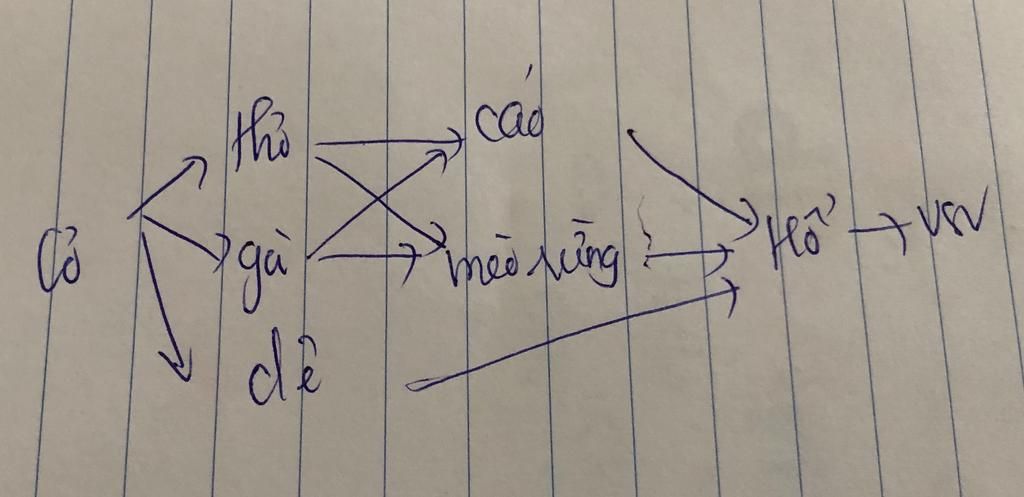 thỏ
cáo
Cỏ
gà
mèo rừng
Hổ
VSV
dê